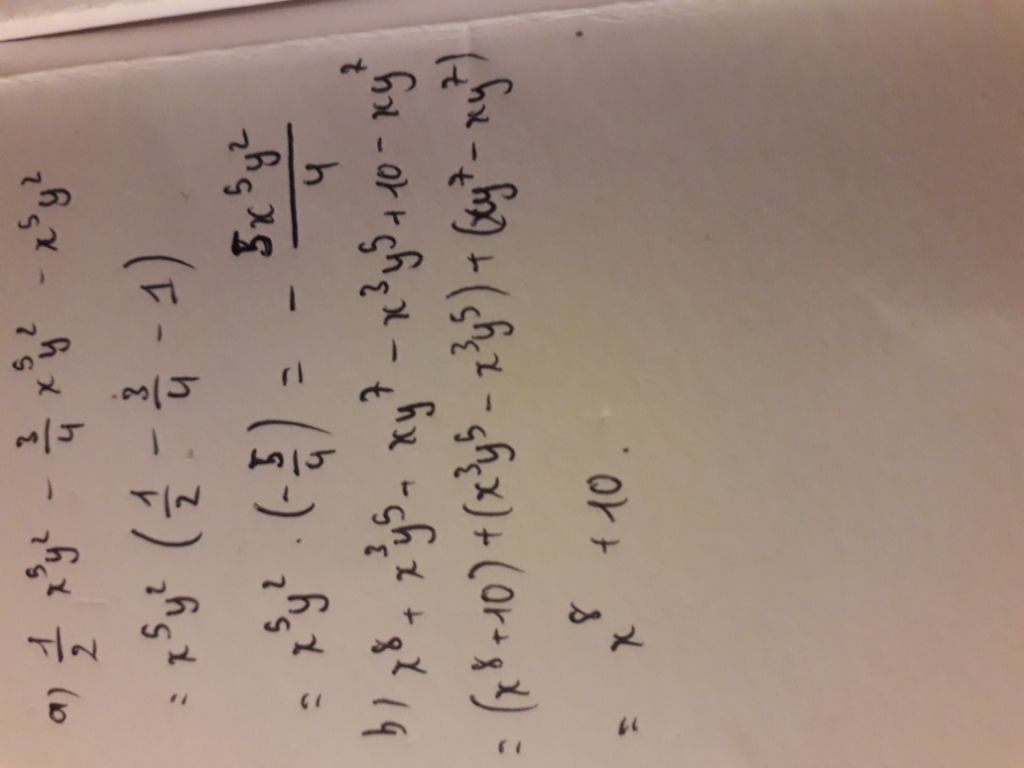 a) 1/2 x⁵y² - 3/4 x⁵y² - x⁵y²
= x⁵y² (1/2 - 3/4 - 1)
= x⁵y² . (-5/4) = - 5x⁵y²/4
b) x⁸ + x³y⁵ + xy⁷ - x³y⁵ + 10 - xy⁷
= (x⁸ + 10) + (x³y⁵ - x³y⁵) + (xy⁷ - xy⁷)
= x⁸ + 10.